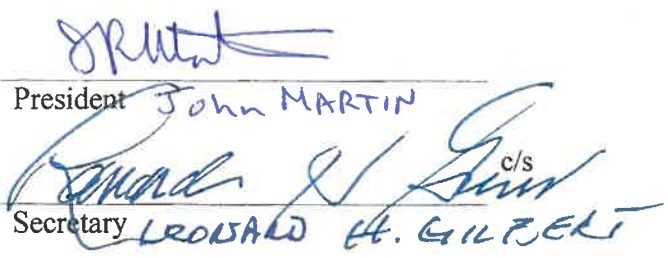 President John MARTIN
c/s
Secretary LEONARD H. GILBERT